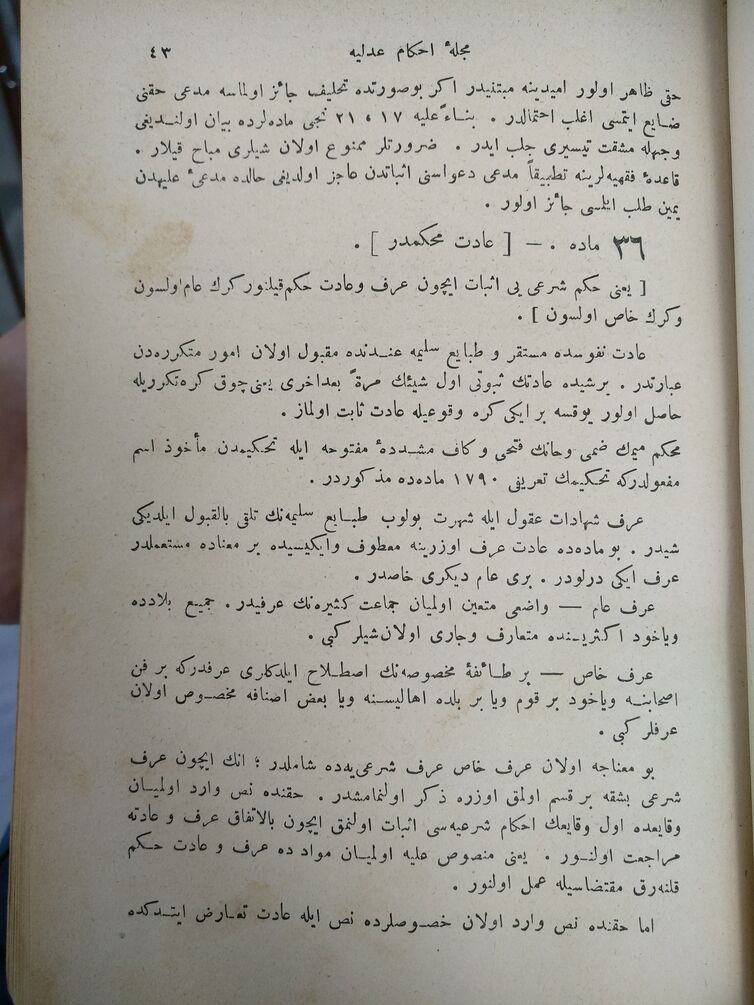 مجلهٔ احكام عدليه ٤٣
حقى ظاهر اولور اميدينه مبتنيدر اكر بوصورتده تحليف جائز اولماسه مدعى حقنى
ضايع ايتمسى اغلب احتمالدر . بناءً عليه ١٧ ، ٢١ نجى ماده‌لرده بيان اولنديغى
وجهله مشقت تيسيرى جلب ايدر . ضرورتلر ممنوع اولان شيلرى مباح قيلار .
قاعدهٔ فقهيه‌لرينه تطبيقاً مدعى دعواسنى اثباتدن عاجز اولديغى حالده مدعىٔ عليهدن
يمين طلب ايلمسى جائز اولور .
٣٦ ماده . — [ عادت محكمدر ] .
[ يعنى حكم شرعى يى اثبات ايچون عرف وعادت حكم قيلنور كرك عام اولسون
وكرك خاص اولسون ] .
عادت نفوسده مستقر و طبايع سليمه عندنده مقبول اولان امور متكرره‌دن
عبارتدر . برشيده عادتك ثبوتى اول شيئك مرةً بعداخرى يعنى چوق كره تكرريله
حاصل اولور يوقسه بر ايكى كره وقوعيله عادت ثابت اولماز .
محكم ميمك ضمى وحانك فتحى و كاف مشددهٔ مفتوحه ايله تحكيمدن مأخوذ اسم
مفعولدركه تحكيمك تعريفى ١٧٩٠ ماده‌ده مذكوردر .
عرف شهادات عقول ايله شهرت بولوب طبايع سليمه‌نك تلقى بالقبول ايلديكى
شيدر . بو ماده‌ده عادت عرف اوزرينه معطوف وايكيسيده بر معناده مستعملدر
عرف ايكى درلودر . برى عام ديكرى خاصدر .
عرف عام — واضعى متعين اولميان جماعت كثيره‌نك عرفيدر . جميع بلادده
وياخود اكثريسنده متعارف وجارى اولان شيلر كبى .
عرف خاص — بر طائفهٔ مخصوصه‌نك اصطلاح ايلدكلرى عرفدركه بر فن
اصحابنه وياخود بر قوم ويا بر بلده اهاليسنه ويا بعض اصنافه مخصوص اولان
عرفلر كبى .
بو معناجه اولان عرف خاص عرف شرعى‌يه‌ده شاملدر ؛ انك ايچون عرف
شرعى بشقه بر قسم اولمق اوزره ذكر اولنمامشدر . حقنده نص وارد اولميان
وقايعده اول وقايعك احكام شرعيه‌سى اثبات اولنمق ايچون بالاتفاق عرف و عادته
مراجعت اولنور . يعنى منصوص عليه اولميان مواد ده عرف و عادت حكم
قلنه‌رق مقتضاسيله عمل اولنور .
اما حقنده نص وارد اولان خصوصلرده نص ايله عادت تعارض ايتدكده